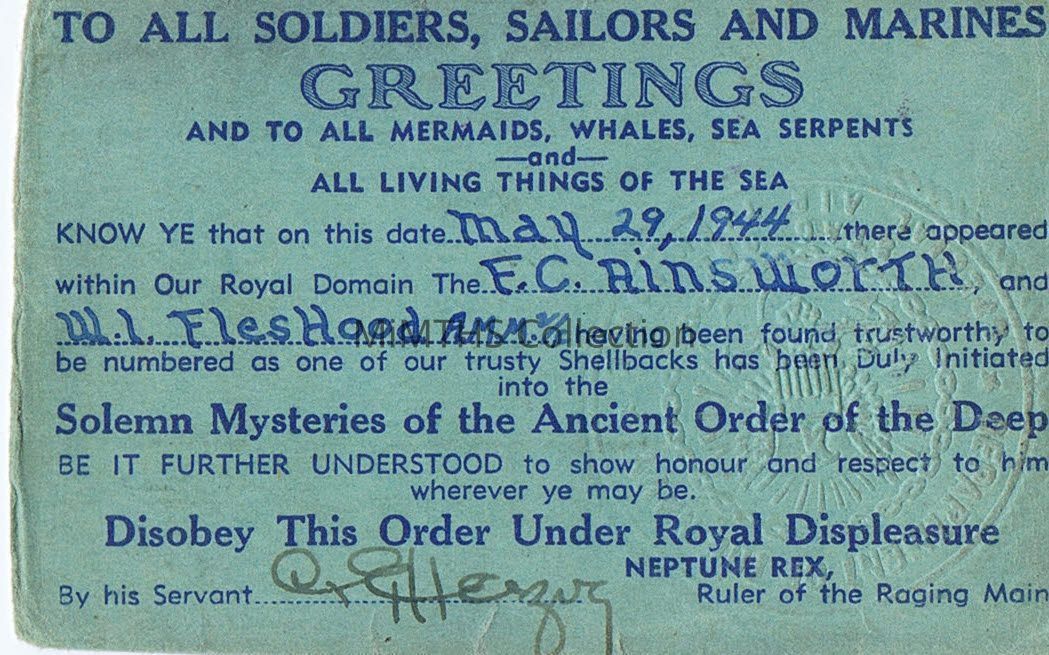 TO ALL SOLDIERS, SAILORS AND MARINES
GREETINGS
AND TO ALL MERMAIDS, WHALES, SEA SERPENTS
—and—
ALL LIVING THINGS OF THE SEA
KNOW YE that on this date May 29, 1944 there appeared
within Our Royal Domain The F.C. AINSWORTH, and
W.L. FlesHood having been found trustworthy to
MIMTHS Collection
be numbered as one of our trusty Shellbacks has been Duly Initiated
into the
Solemn Mysteries of the Ancient Order of the Deep
BE IT FURTHER UNDERSTOOD to show honour and respect to him
wherever ye may be.
Disobey This Order Under Royal Displeasure
NEPTUNE REX,
By his Servant Ruler of the Raging Main